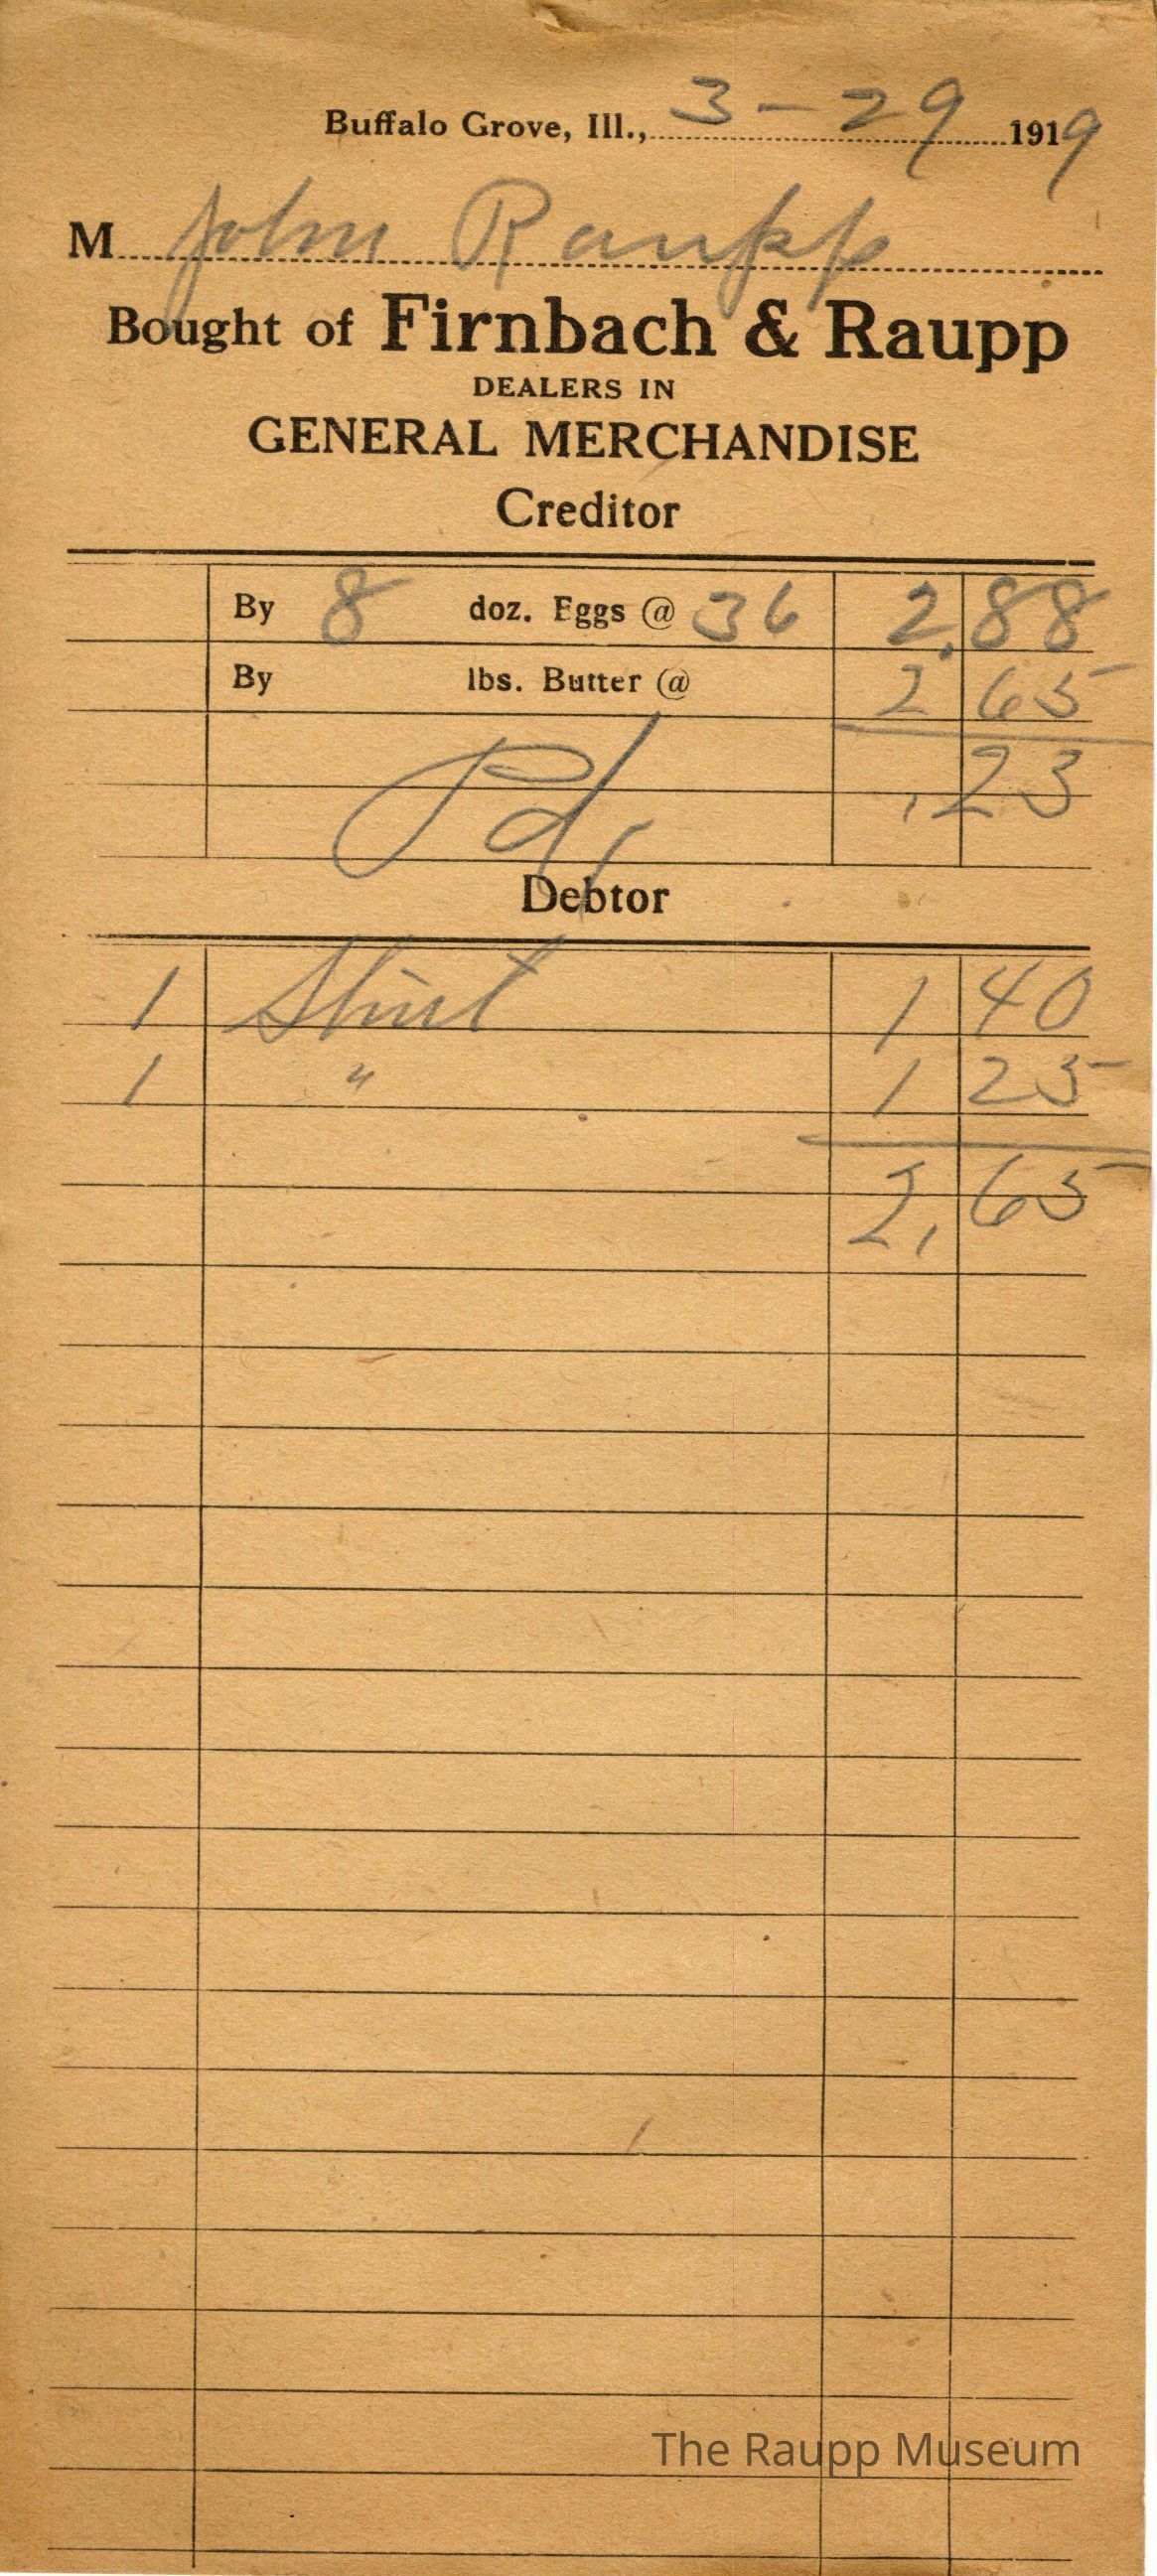 Buffalo Grove, Ill., 3 - 29 1919
M John Raupp
Bought of Firnbach & Raupp
DEALERS IN
GENERAL MERCHANDISE
Creditor
By 8 doz. Eggs @ 36 2.88
By lbs. Butter @ 2 65
Pd, .23
Debtor
1 Shirt 1 40
1 " 1 25
2,65
The Raupp Museum